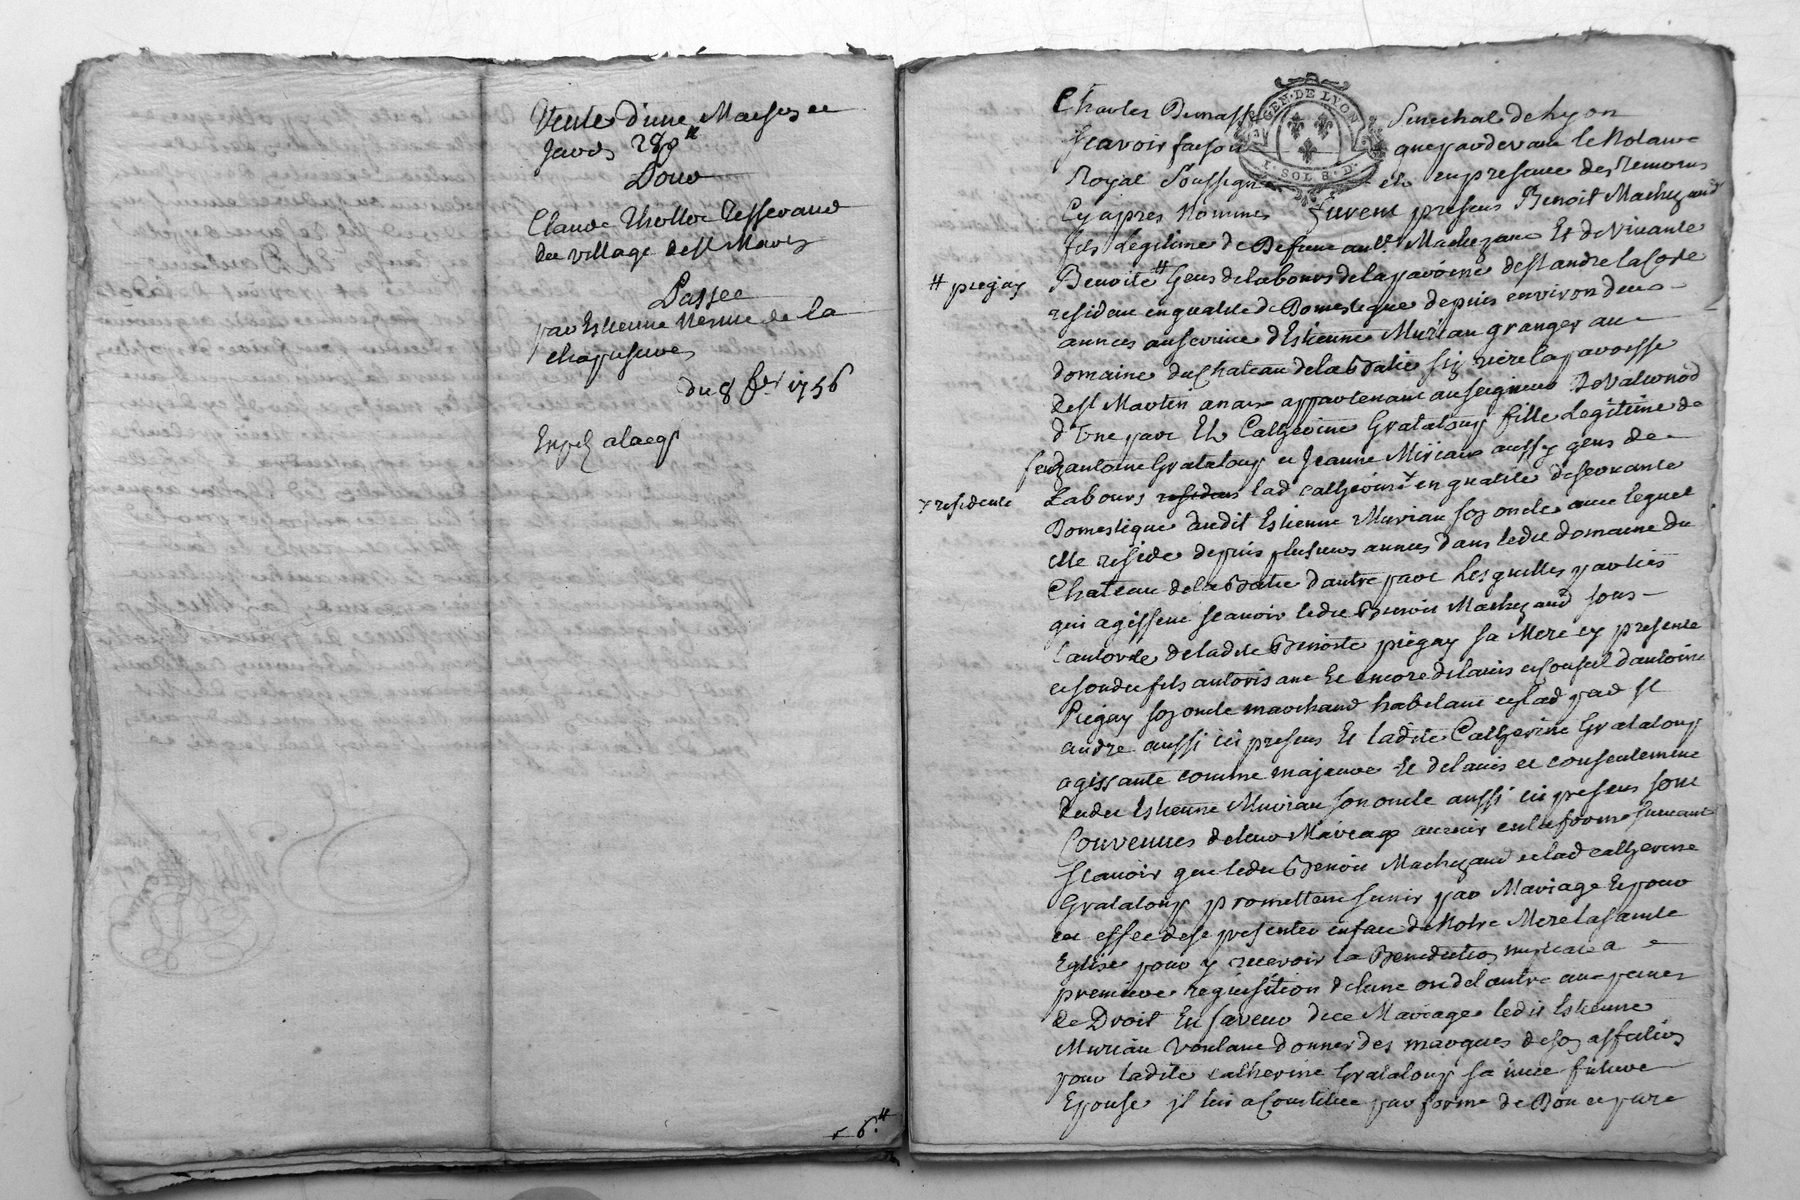 Vente d'une Maison et
Jardin 280 ^tt
Pour
Claude Thollot Tesserand
du village de St Maris
Passee
par Estienne Vernue de la
chapuseuve
du 8 fbre 1756
Exped alaeqs
6 ^tt
GEN. DE LYON
1. SOL 8. D.
Charles Demasse Senechal de Lyon
Scavoir faisons que pardevant le Notaire
Royal Soussigné et en presence des Temoins
Cy apres Nommes furent presens Benoit Machizaud
fils Legitime de Defunt ant. Machizaud Et de Vivante
# piegay Benoite # Gens de labours de la paroisse de St andre la Coste
residant en qualité de Domestique depuis environ deux
années au service d'Estienne Murian granger au
domaine du Chateau de la Batie siz riere la paroisse
de St Martin anaux appartenant au seigneur De Valernod
d'Une part Et Catherine Grataloup fille Legitime de
feuz antoine Grataloup et Jeanne Mirian aussy gens de
+ residente Labours residens lad Catherine + en qualité de servante
Domestique dudit Estienne Murian son oncle avec lequel
elle reside depuis plusieurs années dans ledit domaine du
Chateau de la Batie d'autre part Lesquelles parties
qui agissent scavoir ledit Benoit Machizaud sous
l'autorité de ladite Benoite piegay sa Mere cy presente
et sondit fils autorisant Et encore de l'avis et conseil d'antoine
Piegay son oncle marchand habitant en lad par St
andre aussi ici present Et ladite Catherine Grataloup
agissante comme majeure Et de l'avis et consentement
dudit Estienne Murian son oncle aussi ici present sont
Convenues de leur Mariage avenir en la forme suivant
Scavoir que ledit Benoit Machizaud et lad Catherine
Grataloup promettent s'unir par Mariage Et pour
cet effet de se presenter en face de Notre Mere la sainte
Eglise pour y recevoir la Benediction nuptiale a
premiere requisition de l'une ou de l'autre aux peines
de Droit En faveur de ce Mariage ledit Estienne
Murian Voulant donner des marques de son affection
pour ladite Catherine Grataloup sa niece future
Epouse il lui a Constitué par forme de Don et part